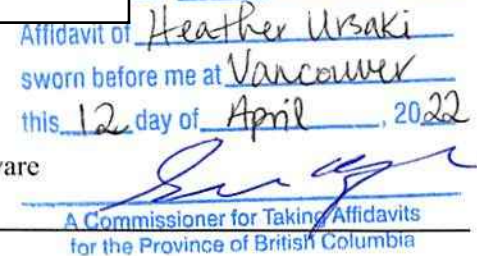 Affidavit of Heather Ursaki
sworn before me at Vancouver
this 12 day of April, 2022
A Commissioner for Taking Affidavits
for the Province of British Columbia